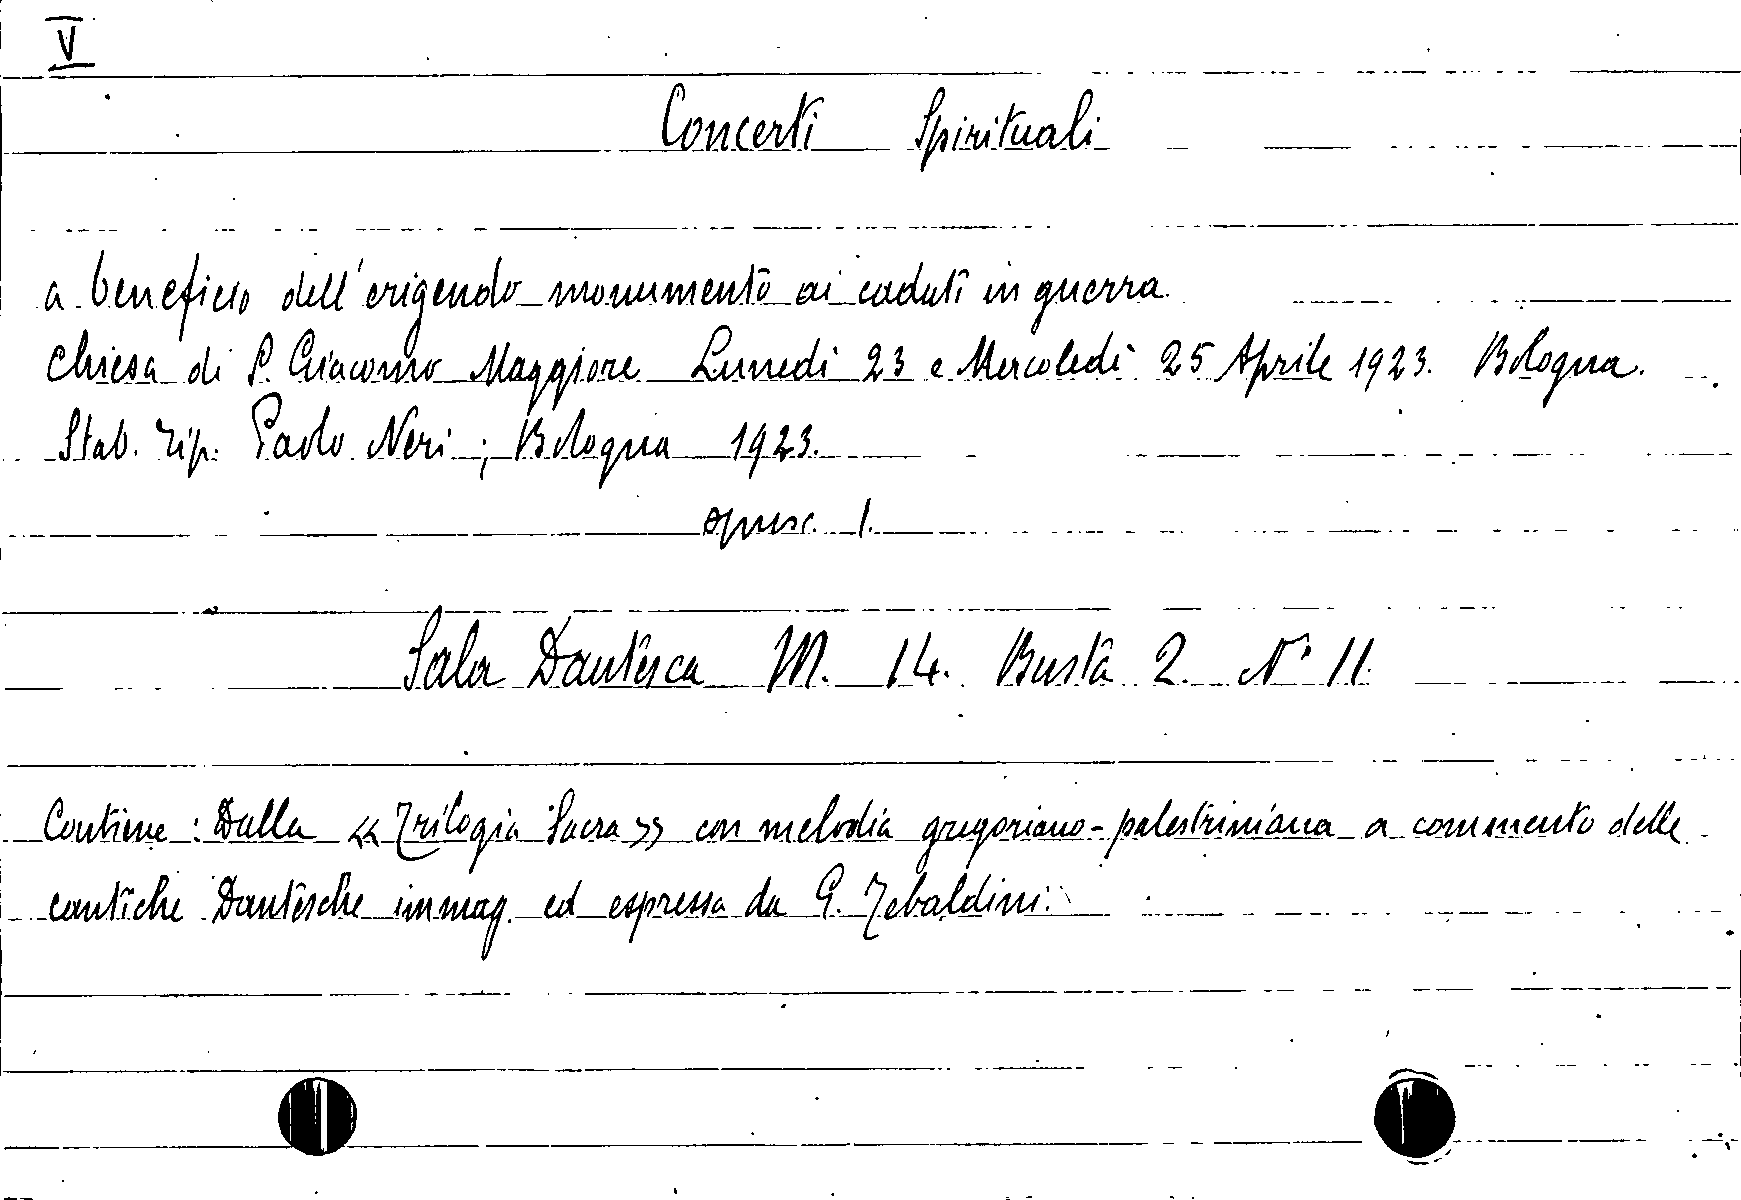 V
Concerti Spirituali
a beneficio dell'erigendo monumento ai caduti in guerra
Chiesa di S. Giacomo Maggiore Lunedì 23 e Mercoledì 25 Aprile 1923. Bologna.
Stab. Tip. Paolo Neri; Bologna 1923.
opusc. 1.
Sala Dantesca M. 14. Busta 2. N° 11.
Contiene: Dalla «Trilogia Sacra» con melodia gregoriano-palestriniana a commento delle
cantiche Dantesche immag. ed espressa da G. Tebaldini.